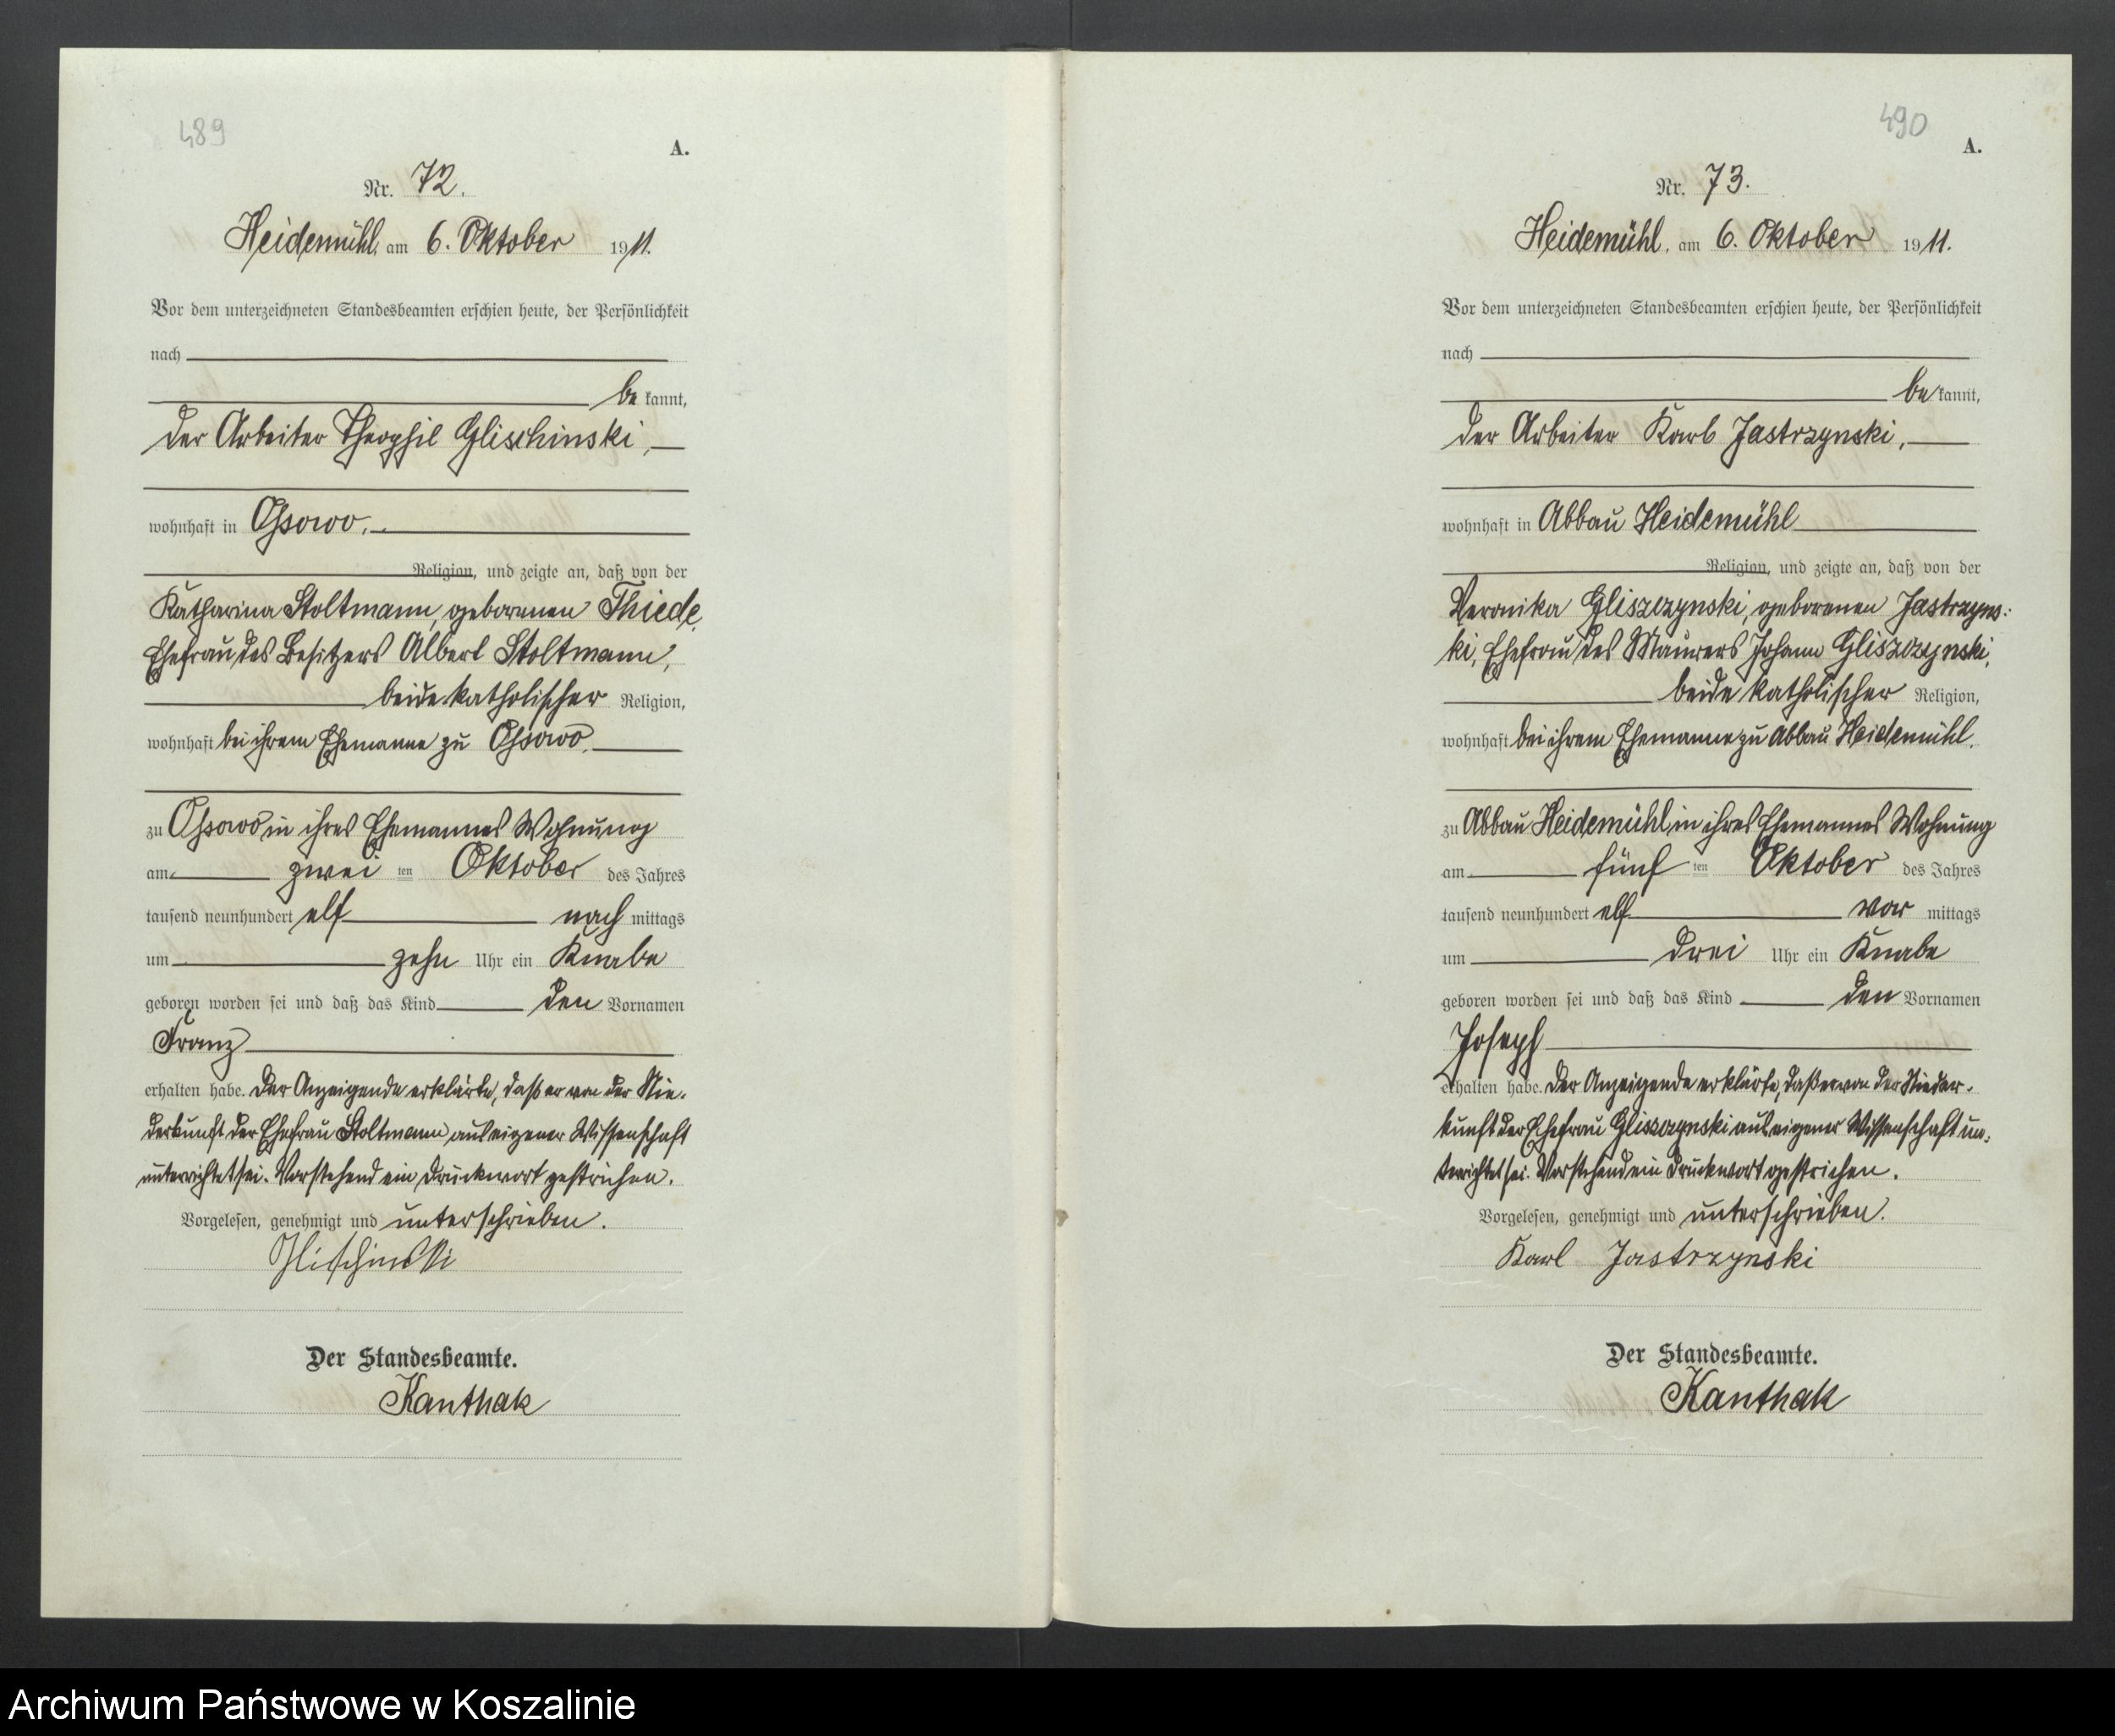 489
A.
Nr. 72.
Heidemühl, am 6. Oktober 1911.
Vor dem unterzeichneten Standesbeamten erschien heute, der Persönlichkeit
nach
be kannt,
der Arbeiter Theophil Glischinski,
wohnhaft in Ossowo.
Religion, und zeigte an, daß von der
Katharina Stoltmann, geborenen Thiede,
Ehefrau des Besitzers Albert Stoltmann,
beide katholischer Religion,
wohnhaft bei ihrem Ehemanne zu Ossowo,
zu Ossowo in ihres Ehemannes Wohnung
am zwei ten Oktober des Jahres
tausend neunhundert elf nach mittags
um zehn Uhr ein Knabe
geboren worden sei und daß das Kind den Vornamen
Franz
erhalten habe. Der Anzeigende erklärte, daß er von der Nie-
derkunft der Ehefrau Stoltmann aus eigener Wissenschaft
unterrichtet sei. Vorstehend ein Druckwort gestrichen.
Vorgelesen, genehmigt und unterschrieben.
Glischinski
Der Standesbeamte.
Kanthak
490
A.
Nr. 73.
Heidemühl, am 6. Oktober 1911.
Vor dem unterzeichneten Standesbeamten erschien heute, der Persönlichkeit
nach
be kannt,
der Arbeiter Karl Jastrzynski,
wohnhaft in Abbau Heidemühl
Religion, und zeigte an, daß von der
Veronika Gliszczynski, geborenen Jastrzyns-
ki, Ehefrau des Maurers Johann Gliszczynski,
beide katholischer Religion,
wohnhaft bei ihrem Ehemanne zu Abbau Heidemühl,
zu Abbau Heidemühl in ihres Ehemannes Wohnung
am fünf ten Oktober des Jahres
tausend neunhundert elf vor mittags
um drei Uhr ein Knabe
geboren worden sei und daß das Kind den Vornamen
Joseph
erhalten habe. Der Anzeigende erklärte, daß er von der Nieder-
kunft der Ehefrau Gliszczynski aus eigener Wissenschaft un-
terrichtet sei. Vorstehend ein Druckwort gestrichen.
Vorgelesen, genehmigt und unterschrieben.
Karl Jastrzynski
Der Standesbeamte.
Kanthak
Archiwum Państwowe w Koszalinie